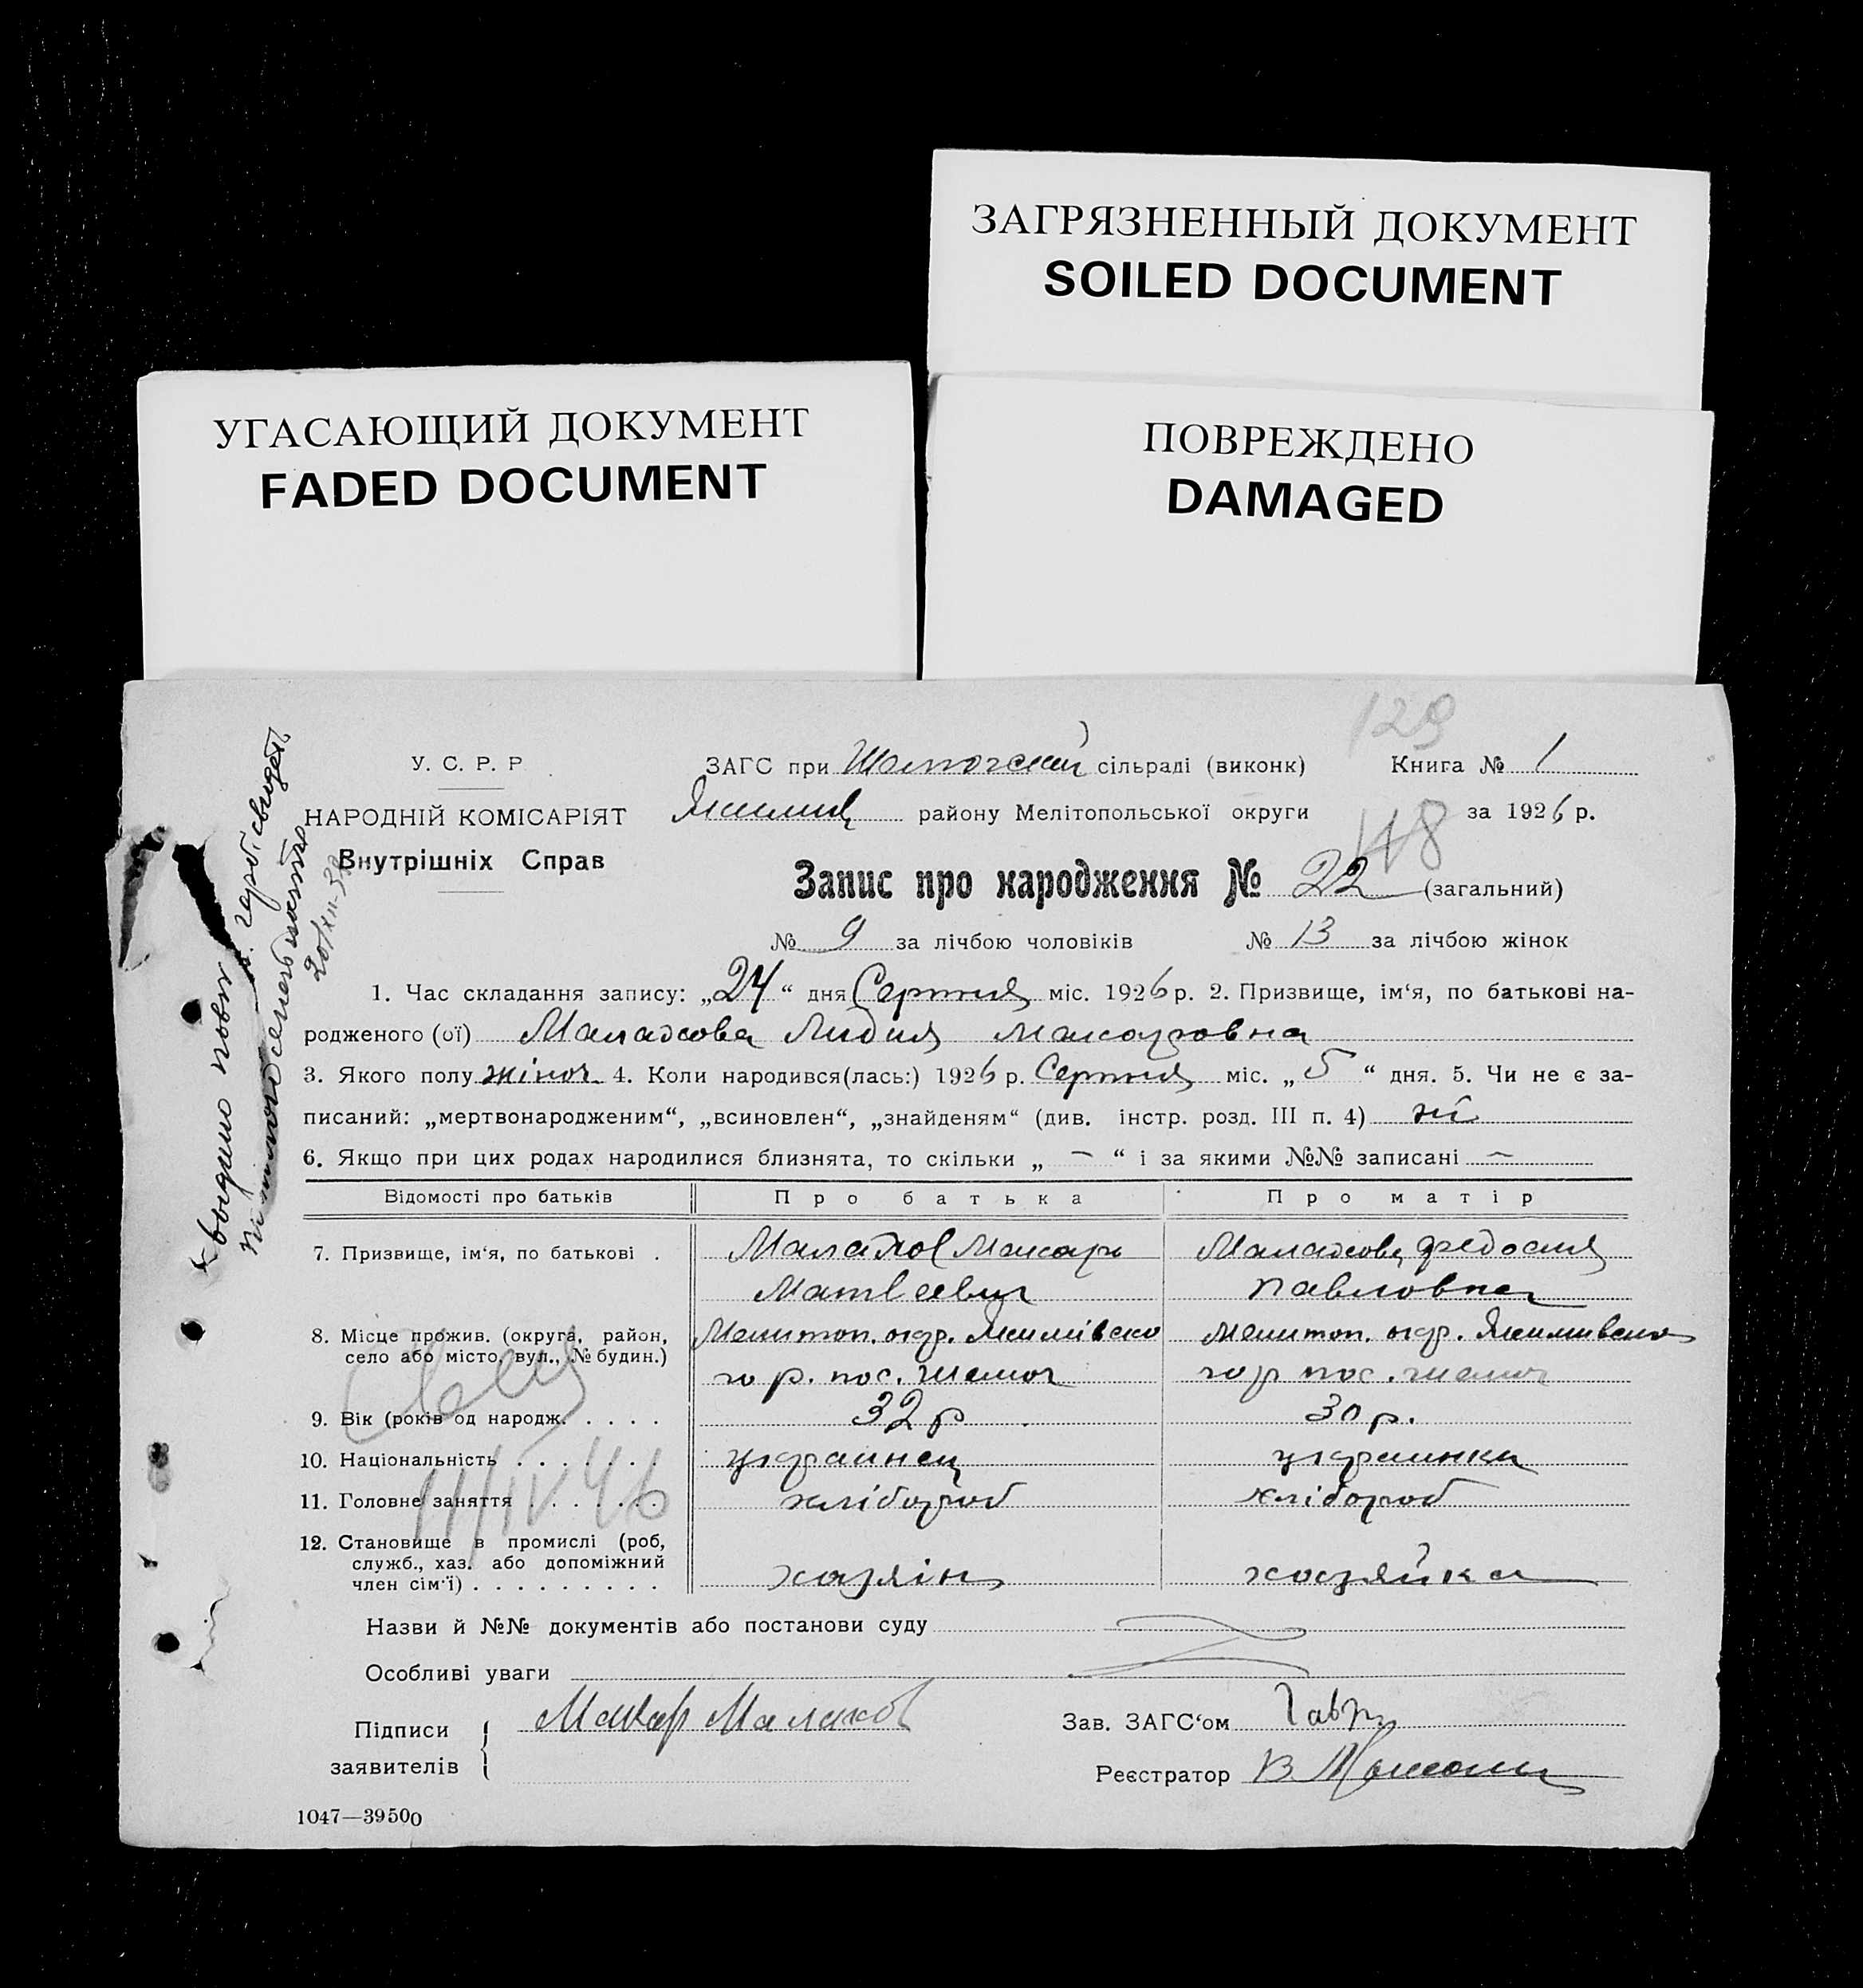 ЗАГРЯЗНЕННЫЙ ДОКУМЕНТ
SOILED DOCUMENT
УГАСАЮЩИЙ ДОКУМЕНТ
FADED DOCUMENT
ПОВРЕЖДЕНО
DAMAGED
129
У. С. Р. Р
ЗАГС при сільраді (виконк) Книга № 1
НАРОДНІЙ КОМІСАРІЯТ
району Мелітопольської округи за 1926 р.
118
Внутрішніх Справ
Запис про народження № 22 (загальний)
№ 9 за лічбою чоловіків № 13 за лічбою жінок
1. Час складання запису: „24“ дня Серпня міс. 1926 р. 2. Призвище, ім‘я, по батькові на-
родженого (ої) Малахова Лидия Макаровна
3. Якого полу жіноч 4. Коли народився(лась:) 1926 р. Серпня міс. „5“ дня. 5. Чи не є за-
писаний: „мертвонародженим“, „всиновлен“, „знайденям“ (див. інстр. розд. III п. 4) ні
6. Якщо при цих родах народилися близнята, то скільки „ – “ і за якими №№ записані –
Відомості про батьків Про батька Про матір
7. Призвище, ім‘я, по батькові . Малахов Макарь Малахова Федосия
Матвеевич Павловна
8. Місце прожив. (округа, район, Мелитоп. окр. Якимівско Мелитоп. окр. Якимивско
село або місто, вул., № будин.)
го р. пос. го р пос.
9. Вік (років од народж. . . . . 32 р 30 р.
10. Національність . . . . . . . украинец украинка
11. Головне заняття . . . . . . . хлібороб хлібороб
11/IV 46
12. Становище в промислі (роб,
служб., хаз. або допоміжний
член сім‘ї) . . . . . . . . . хазяін хозяйка
Назви й №№ документів або постанови суду
Особливі уваги
Підписи заявителів Макар Малахов Зав. ЗАГС‘ом
Реєстратор В.
1047—39500